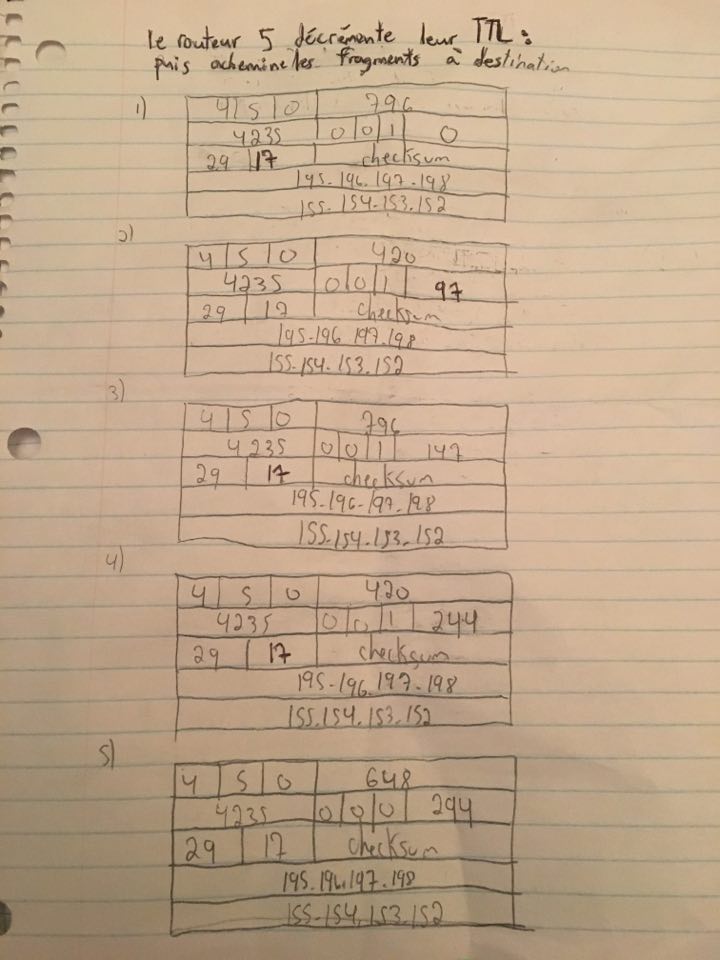 le routeur 5 décrémente leur TTL :
puis achemine les fragments à destination
1)
4 5 0 796
4235 0 0 1 0
29 17 checksum
195.196.197.198
155.154.153.152
2)
4 5 0 420
4235 0 0 1 97
29 17 checksum
195.196.197.198
155.154.153.152
3)
4 5 0 796
4235 0 0 1 147
29 17 checksum
195.196.197.198
155.154.153.152
4)
4 5 0 420
4235 0 0 1 244
29 17 checksum
195.196.197.198
155.154.153.152
5)
4 5 0 648
4235 0 0 0 294
29 17 checksum
195.196.197.198
155.154.153.152